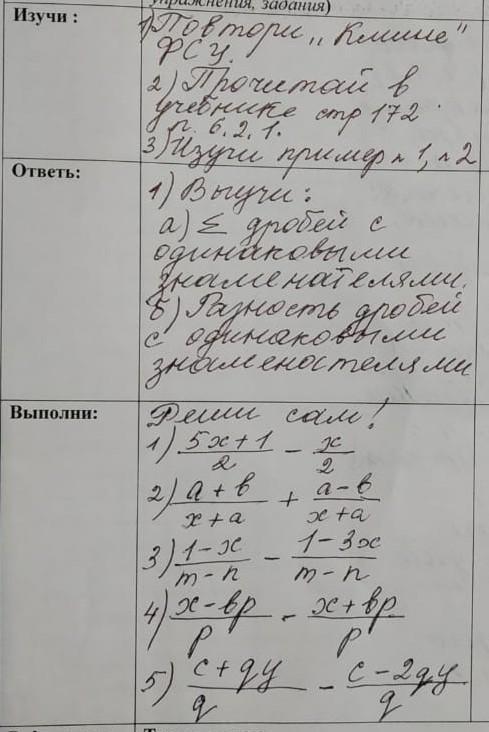 упражнения, задания)
Изучи :
1) Повтори „Клише"
ФСУ.
2) Прочитай в
учебнике стр 172
п. 6.2.1.
3) Изучи пример n 1, n 2
Ответь:
1) Выучи:
а) Σ дробей с
одинаковыми
знаменателями.
б) Разность дробей
с одинаковыми
знаменателями
Выполни:
Реши сам!
1) (5x+1)/2 - x/2
2) (a+b)/(x+a) + (a-b)/(x+a)
3) (1-x)/(m-n) - (1-3x)/(m-n)
4) (x-bp)/p - (x+bp)/p
5) (c+qy)/q - (c-2qy)/q